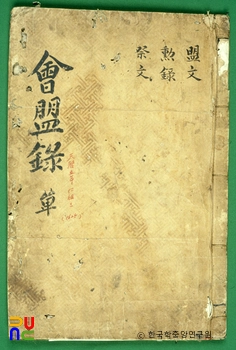 盟文
勲録
祭文
會盟錄
草
ⓒ한국학중앙연구원